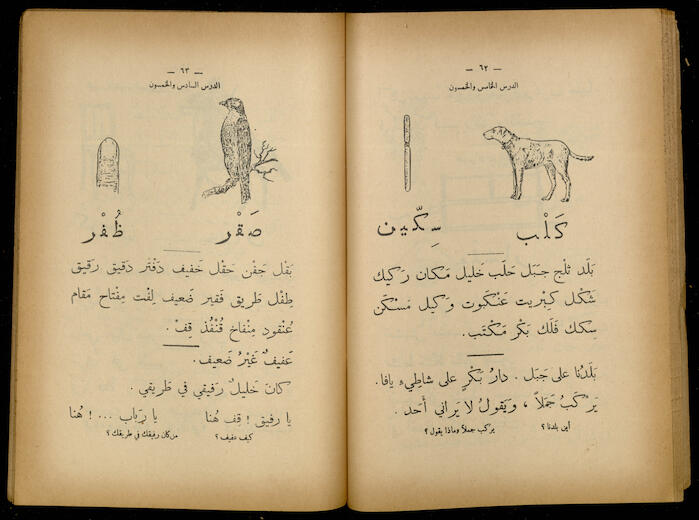 — ٦٢ —
الدرس الخامس والخمسون
كَلْب سِكّين
بَلَد ثلْج جَبَل حَلَب خَليل مَكان رَكيك
شَكْل كِبْريت عَنْكَبوت وَكيل مَسْكَن
سِكك فَلَك بَكْر مَكْتَب.
بَلَدُنا على جَبَل. دارُ بَكْرٍ على شاطِيء يافا.
يَرْكَبُ جَمَلاً ، وَيَقولُ لا يَراني أَحَد .
أين بلدنا ؟ يركب جملاً وماذا يقول ؟
— ٦٣ —
الدرس السادس والخمسون
صَقْر ظُفْر
بَقْل جَفْن حَقْل خَفيف دَفْتَر دَقيق رَقيق
طِفْل طَريق فَقير ضَعيف لِفْت مِفْتاح مَقام
عُنْقود مِنْفاخ قُنْفُذ قِفْ .
عَفيفٌ غَيْرُ ضَعيف.
كانَ خَليلٌ رَفيقي في طَريقي .
يا رفيق ! قِف هُنا يا رَباب ... ! هُنا
كيف عفيف ؟ من كان رفيقك في طريقك ؟